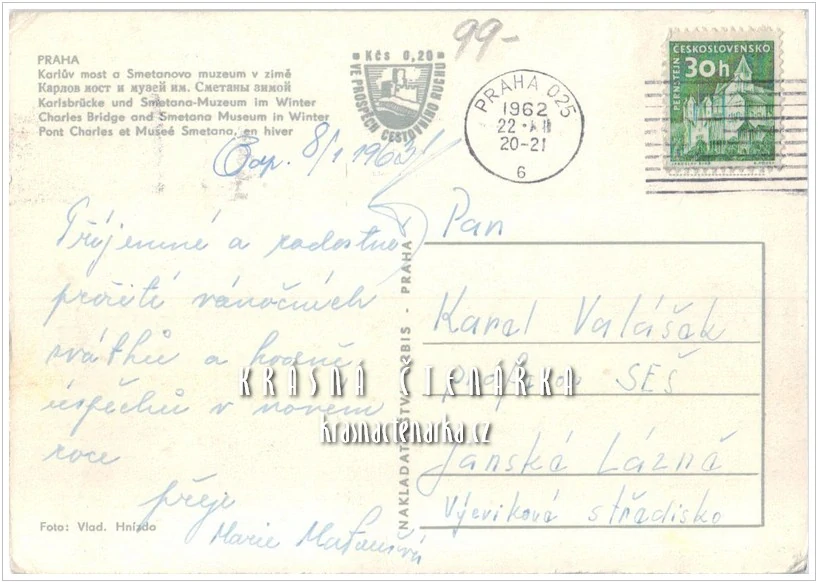 PRAHA
Karlův most a Smetanovo muzeum v zimě
Карлов мост и музей им. Сметаны зимой
Karlsbrücke und Smetana-Muzeum im Winter
Charles Bridge and Smetana Museum in Winter
Pont Charles et Museé Smetana, en hiver
Kčs 0,20
VE PROSPĚCH CESTOVNÍHO RUCHU
99-
PRAHA 025
1962
22
20-21
6
ČESKOSLOVENSKO
30h
PERNŠTEJN
8/1 1963
Příjemné a radostné
prožití vánočních
svátků a hodně
úspěchů v novém
roce
přeje
Marie
Foto: Vlad. Hnízdo
NAKLADATELSTVÍ ORBIS - PRAHA
Pan
Karel Valášek
profesor SEŠ
Janské Lázně
Výcviková středisko
KRÁSNÁ ČTENÁRKA
krasnactenarka.cz